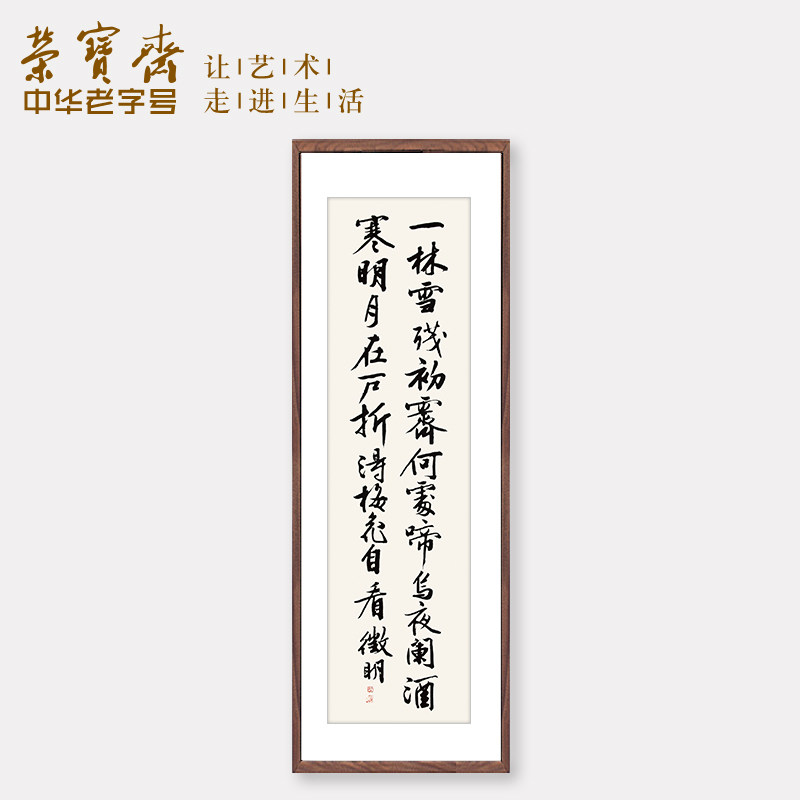 榮寶齋
中华老字号
让艺术
走进生活
一林雪残初霽何處啼烏夜阑酒
寒明月在户折得梅花自看徵明